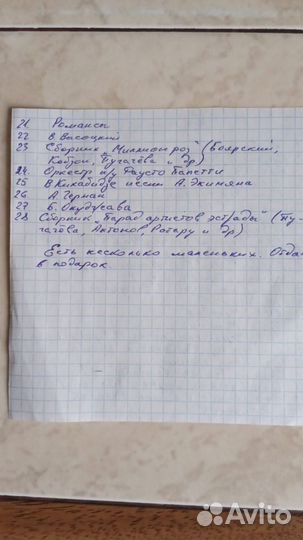 21 Романсы
22 В. Высоцкий
23 Сборник „Миллион роз" (Боярский,
Кобзон, Пугачёва и др)
24. Оркестр п/у Фаусто Папетти
25 В. Кикабидзе песни А. Экимяна
26 А. Герман
27 Б. Окуджава
28 Сборник „Парад артистов эстрады" (Пу-
гачёва, Антонов, Ротару и др)
Есть несколько маленьких. Отда
в подарок
Avito